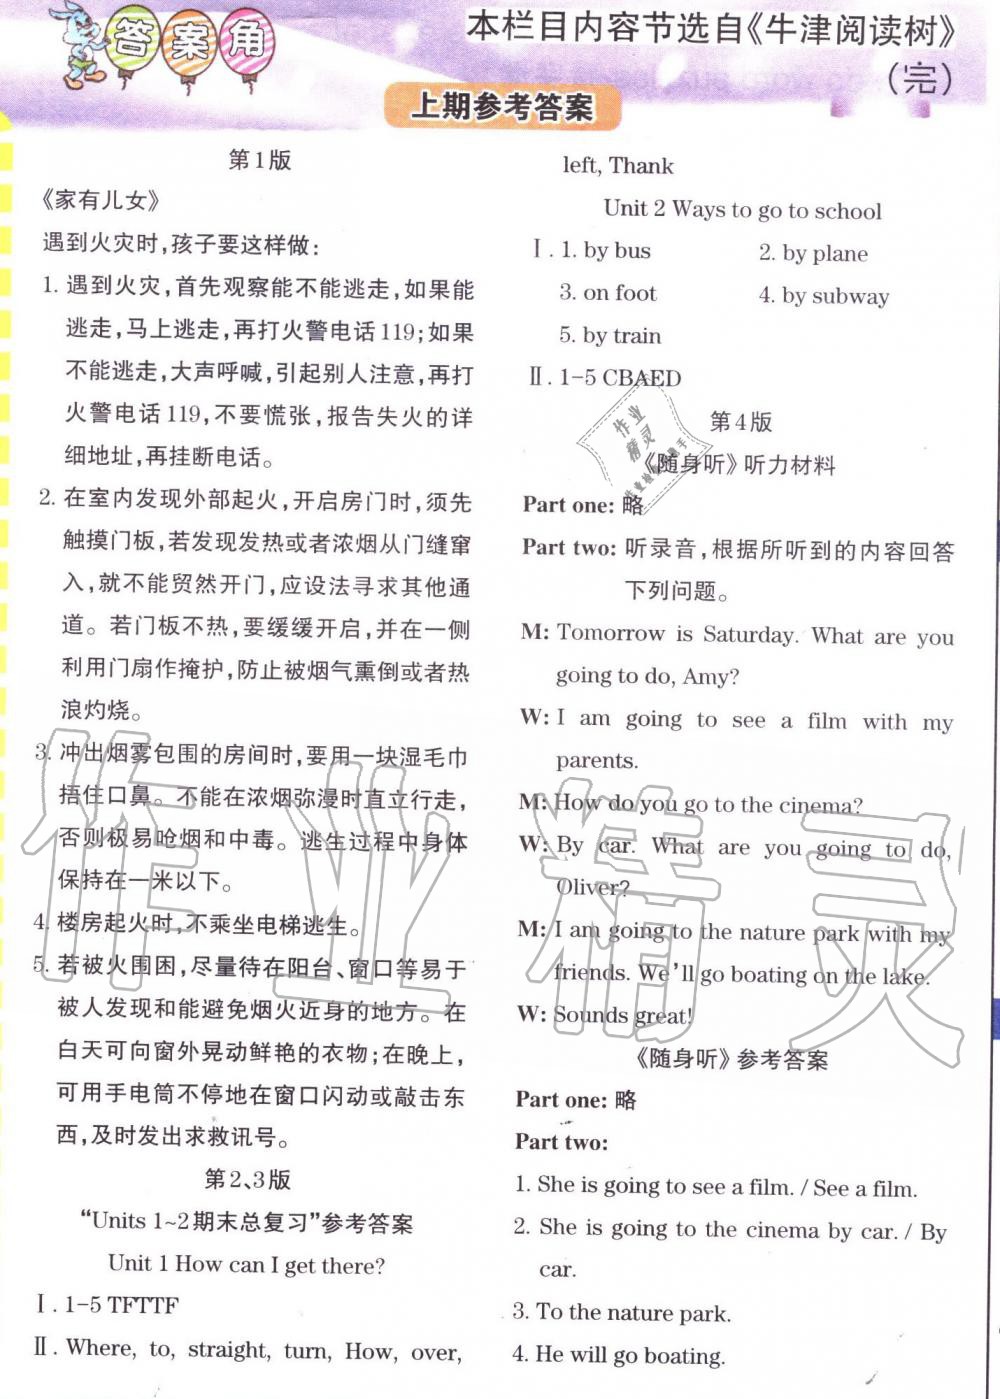 答案角
本栏目内容节选自《牛津阅读树》
(完)
上期参考答案
第1版
《家有儿女》
遇到火灾时,孩子要这样做:
1. 遇到火灾,首先观察能不能逃走,如果能
逃走,马上逃走,再打火警电话119;如果
不能逃走,大声呼喊,引起别人注意,再打
火警电话119,不要慌张,报告失火的详
细地址,再挂断电话。
2. 在室内发现外部起火,开启房门时,须先
触摸门板,若发现发热或者浓烟从门缝窜
入,就不能贸然开门,应设法寻求其他通
道。若门板不热,要缓缓开启,并在一侧
利用门扇作掩护,防止被烟气熏倒或者热
浪灼烧。
3. 冲出烟雾包围的房间时,要用一块湿毛巾
捂住口鼻。不能在浓烟弥漫时直立行走,
否则极易呛烟和中毒。逃生过程中身体
保持在一米以下。
4. 楼房起火时,不乘坐电梯逃生。
5. 若被火围困,尽量待在阳台、窗口等易于
被人发现和能避免烟火近身的地方。在
白天可向窗外晃动鲜艳的衣物;在晚上,
可用手电筒不停地在窗口闪动或敲击东
西,及时发出求救讯号。
第2、3版
“Units 1~2期末总复习”参考答案
Unit 1 How can I get there?
Ⅰ. 1-5 TFTTF
Ⅱ. Where, to, straight, turn, How, over,
left, Thank
Unit 2 Ways to go to school
Ⅰ. 1. by bus 2. by plane
3. on foot 4. by subway
5. by train
Ⅱ. 1-5 CBAED
第4版
《随身听》听力材料
Part one: 略
Part two: 听录音,根据所听到的内容回答
下列问题。
M: Tomorrow is Saturday. What are you
going to do, Amy?
W: I am going to see a film with my
parents.
M: How do you go to the cinema?
W: By car. What are you going to do,
Oliver?
M: I am going to the nature park with my
friends. We'll go boating on the lake.
W: Sounds great!
《随身听》参考答案
Part one: 略
Part two:
1. She is going to see a film. / See a film.
2. She is going to the cinema by car. / By
car.
3. To the nature park.
4. He will go boating.
作业精灵
作业
精灵